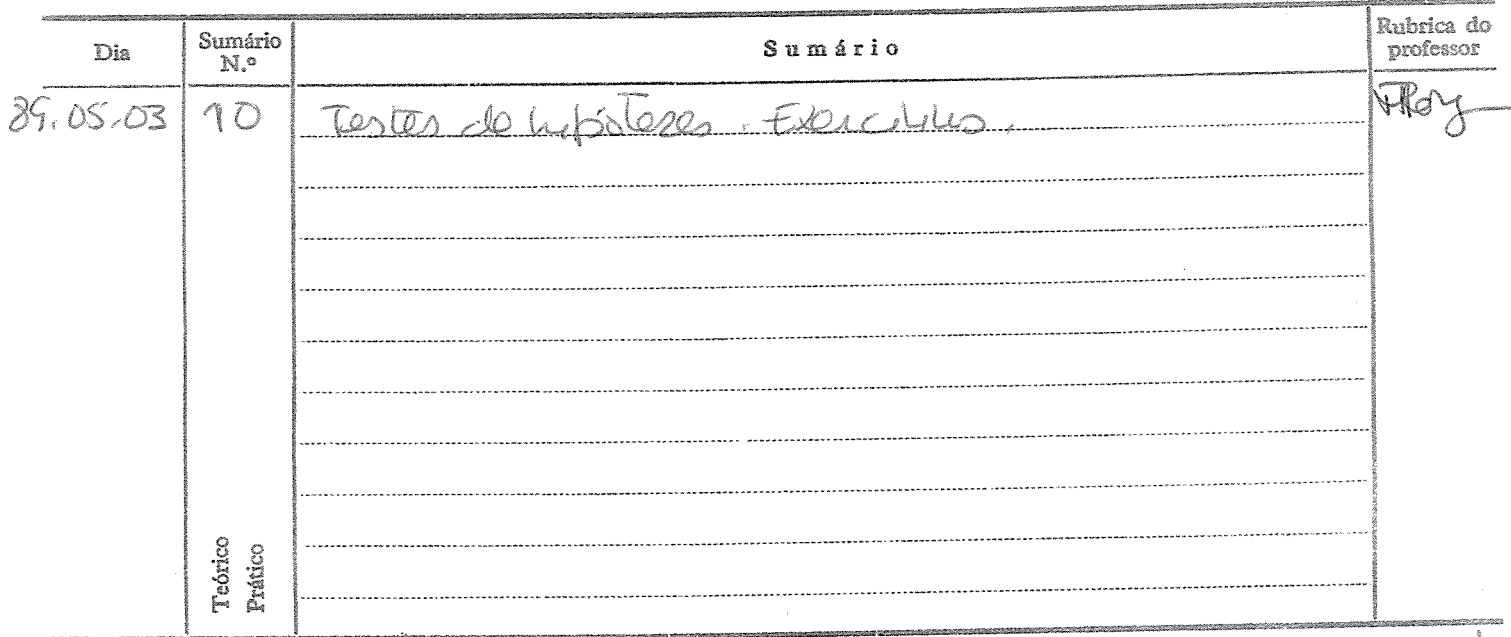 Dia
Sumário N.º
Sumário
Rubrica do professor
89.05.03
10
Testes de hipóteses. Exercícios.
Teórico
Prático